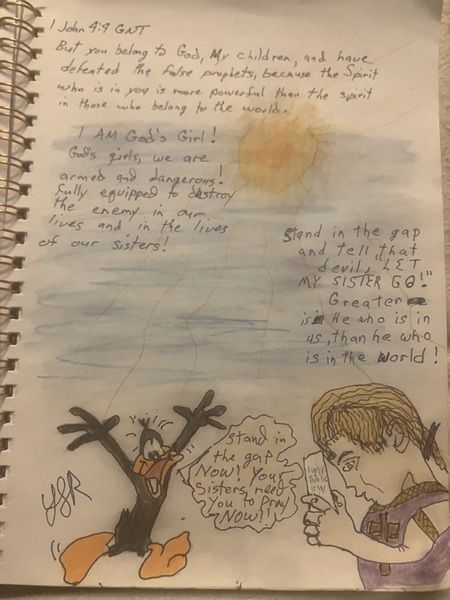 1 John 4:4 GNT
But you belong to God, My children, and have
defeated the false prophets, because the Spirit
who is in you is more powerful than the spirit
in those who belong to the world.
I AM God's Girl!
God's girls, we are
armed and dangerous!
Fully equipped to destroy
the enemy in our
lives and in the lives
of our sisters!
Stand in the gap
and tell that
devil, "LET
MY SISTER GO!"
Greater
is He who is in
us, than he who
is in the world!
Stand in
the gap
NOW! Your
Sisters need
you to pray
NOW!!
Holy
Bible
YSR